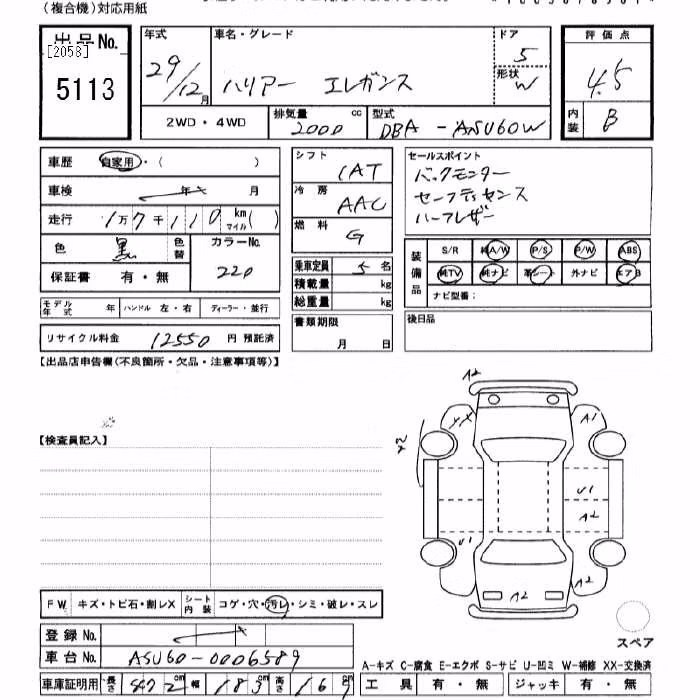 （複合機）対応用紙
出品No.
[2058]
5113
年式
29/12月
車名・グレード
ハリアー エレガンス
ドア
5
形状
W
評価点
4.5
内装
B
2WD・4WD
排気量
2000 cc
型式
DBA - ASU60W
車歴 自家用・( )
車検 年 月
走行 1万7千110 km マイル( )
色 黒 色替
カラーNo.
220
保証書 有・無
モデル年式 年 ハンドル 左・右 ディーラー・並行
リサイクル料金 12550 円 預託済
シフト
IAT
冷房
AAC
燃料
G
乗車定員 5 名
積載量 kg
総重量 kg
書類期限
月 日
セールスポイント
バックモニター
セーフティセンス
ハーフレザー
装備品
S/R 純A/W P/S P/W ABS
純TV 純ナビ 革シート 外ナビ エアB
ナビ型番：
後日品
【出品店申告欄(不良箇所・欠品・注意事項等)】
【検査員記入】
A2
A1
X2
U1
A2
U1
A2
A2
スペア
FW キズ・トビ石・割レX シート内装 コゲ・穴・汚レ・シミ・破レ・スレ
登録No.
車台No. ASU60-0006589
車庫証明用 長さ cm 幅 183 cm 高さ cm
A-キズ C-腐食 E-エクボ S-サビ U-凹ミ W-補修 XX-交換済
工具 有・無 ジャッキ 有・無